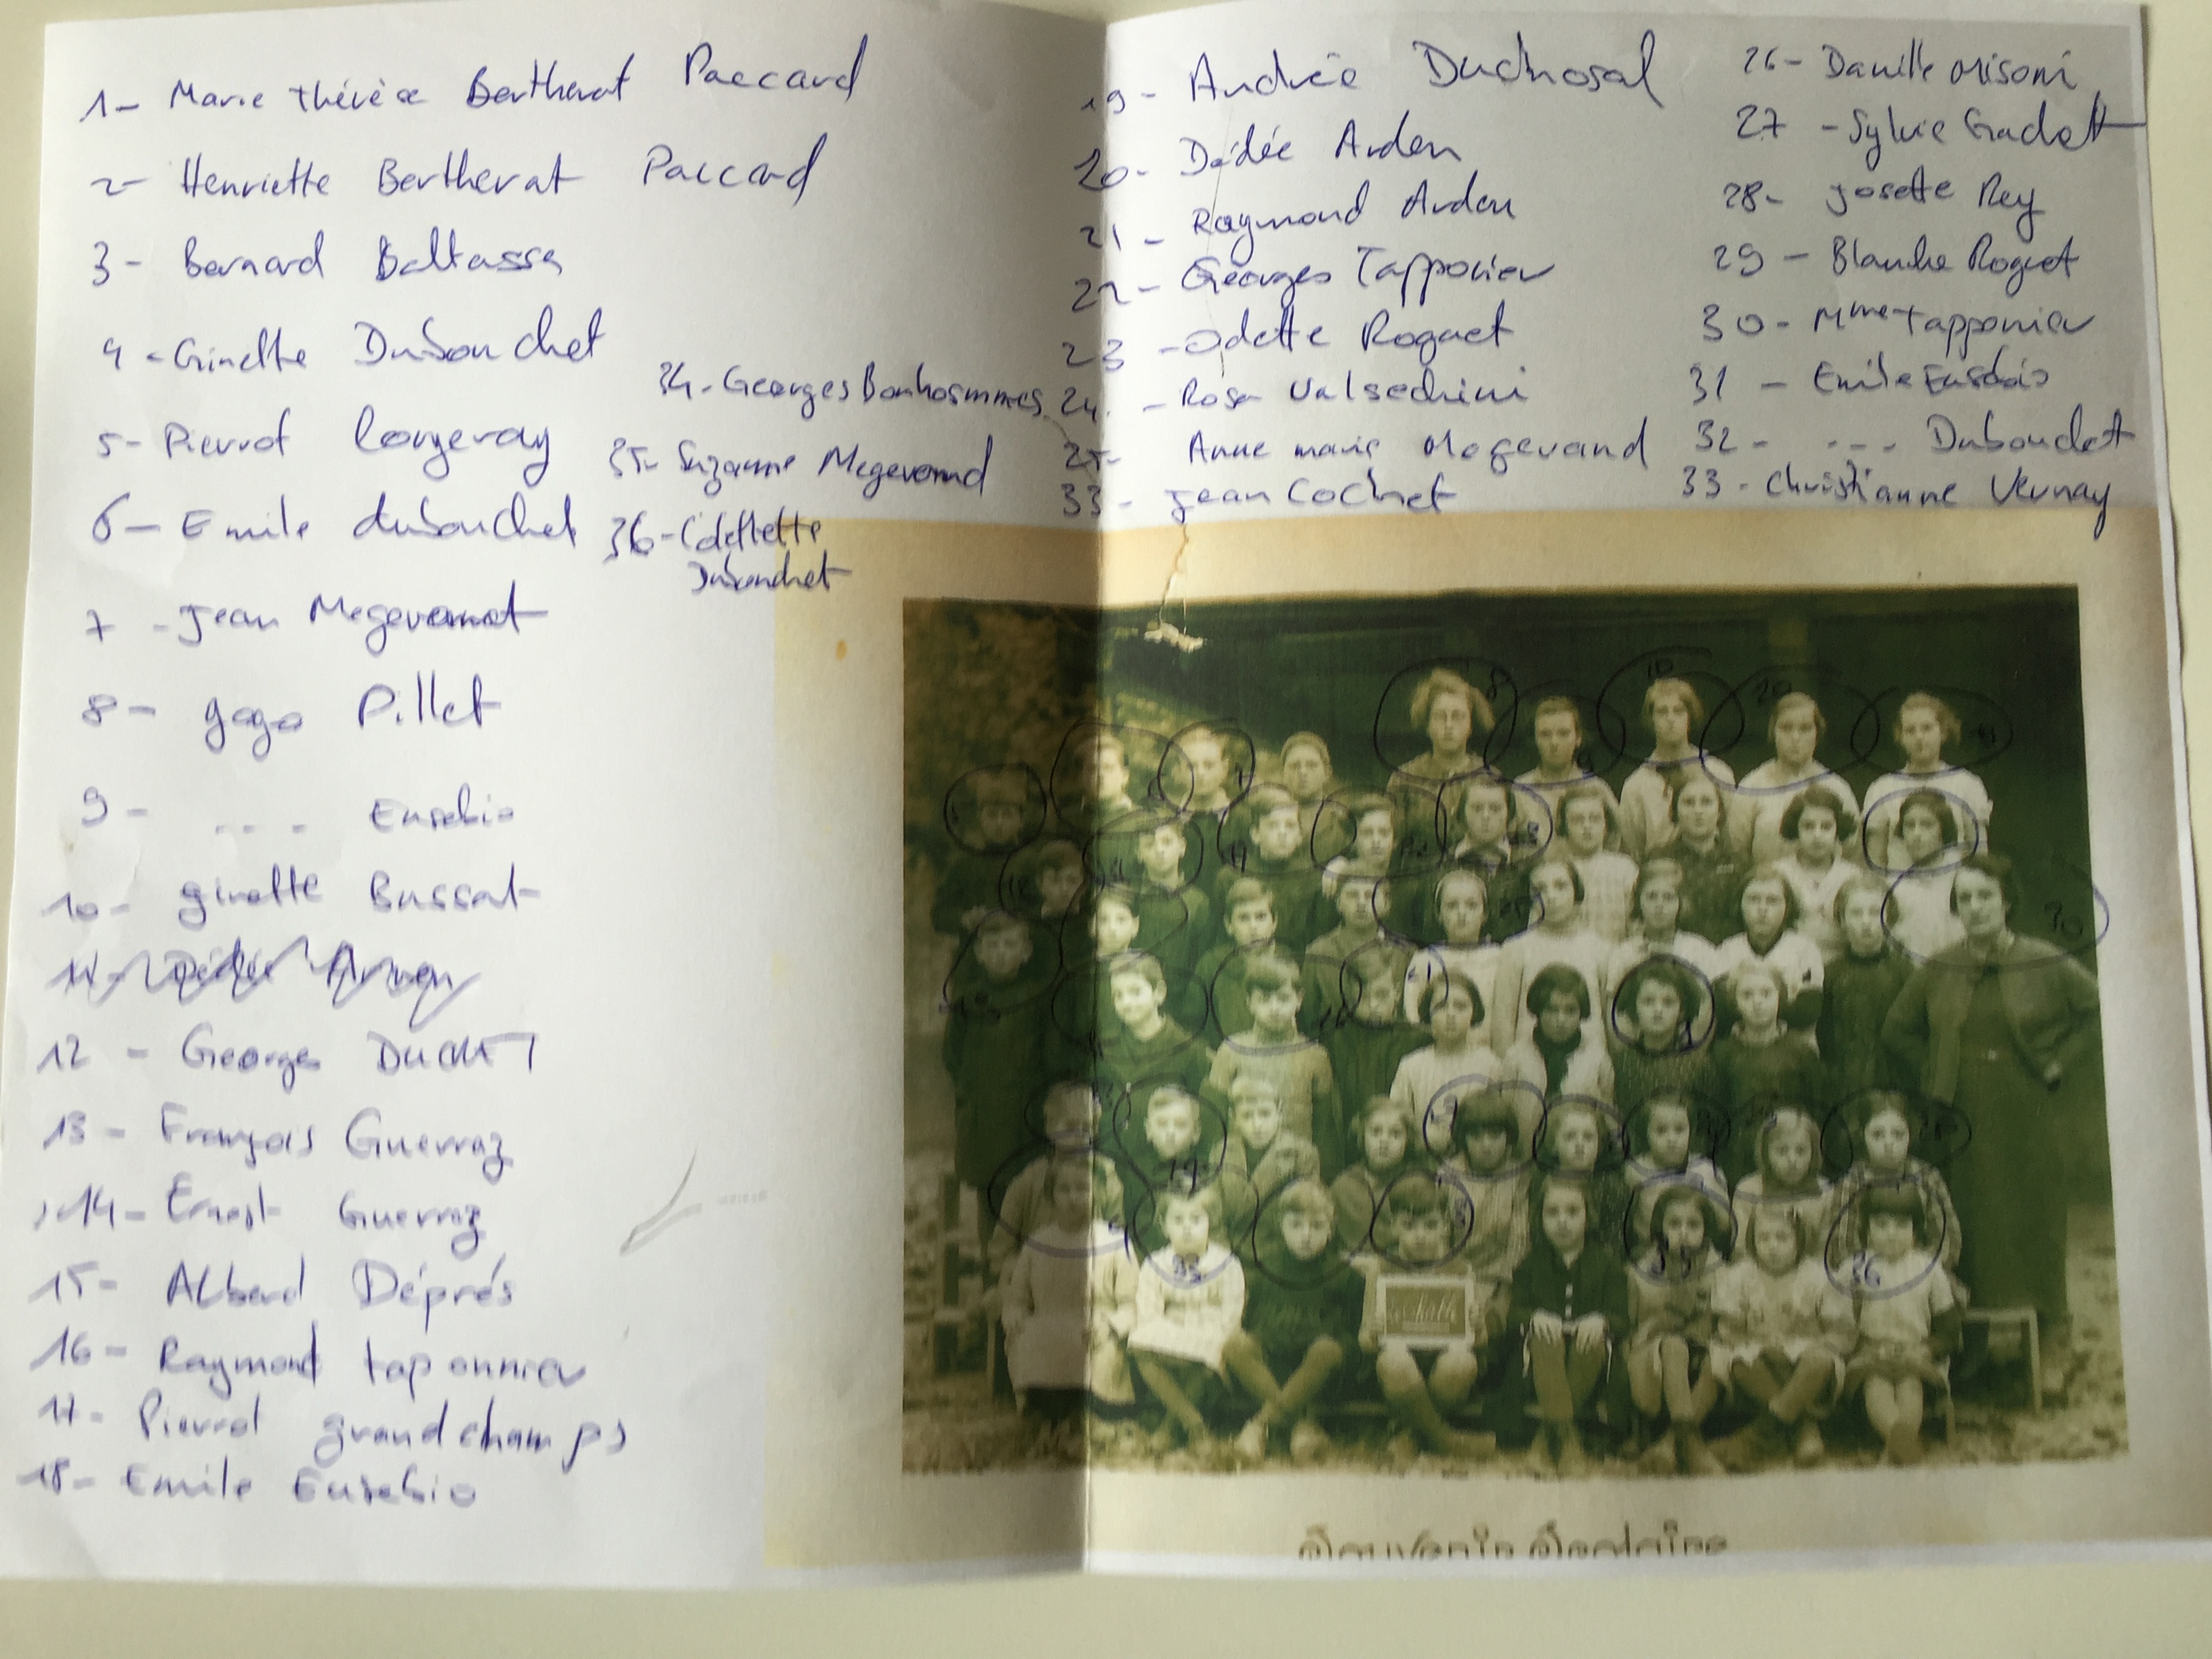 1- Marie Thérèse Bertherat Paccard
2- Henriette Bertherat Paccard
3- Bernard Baltassa
4- Ginette Dubouchet
5- Pierrot Longeray
6- Emile dubouchet
7- Jean Megevand
8- gogo Pillet
9- .... Eusebio
10- ginette Bussat
12- Georges DUCRET
13- François Guerraz
14- Ernest Guerraz
15- Albert Déprés
16- Raymond taponnier
17- Pierrot grandchamps
18- Emile Eusebio
34- Georges Bonhommes
35- Suzanne Megevand
36- Colette
Dubouchet
19- Andrée Duchosal
20- Dédée Arden
21- Raymond Arden
22- Georges Tapponier
23- Odette Roguet
24- Rosa Valsechini
25- Anne marie Megevand
33- Jean Cochet
26- Danielle Misoni
27- Sylvie Gachet
28- Josette Rey
29- Blanche Roguet
30- Mme Tapponier
31- Emile Eusebio
32- ... Dubouchet
33- Christianne Vernay
8
9
10
20
30
35
36
Souvenir Scolaire